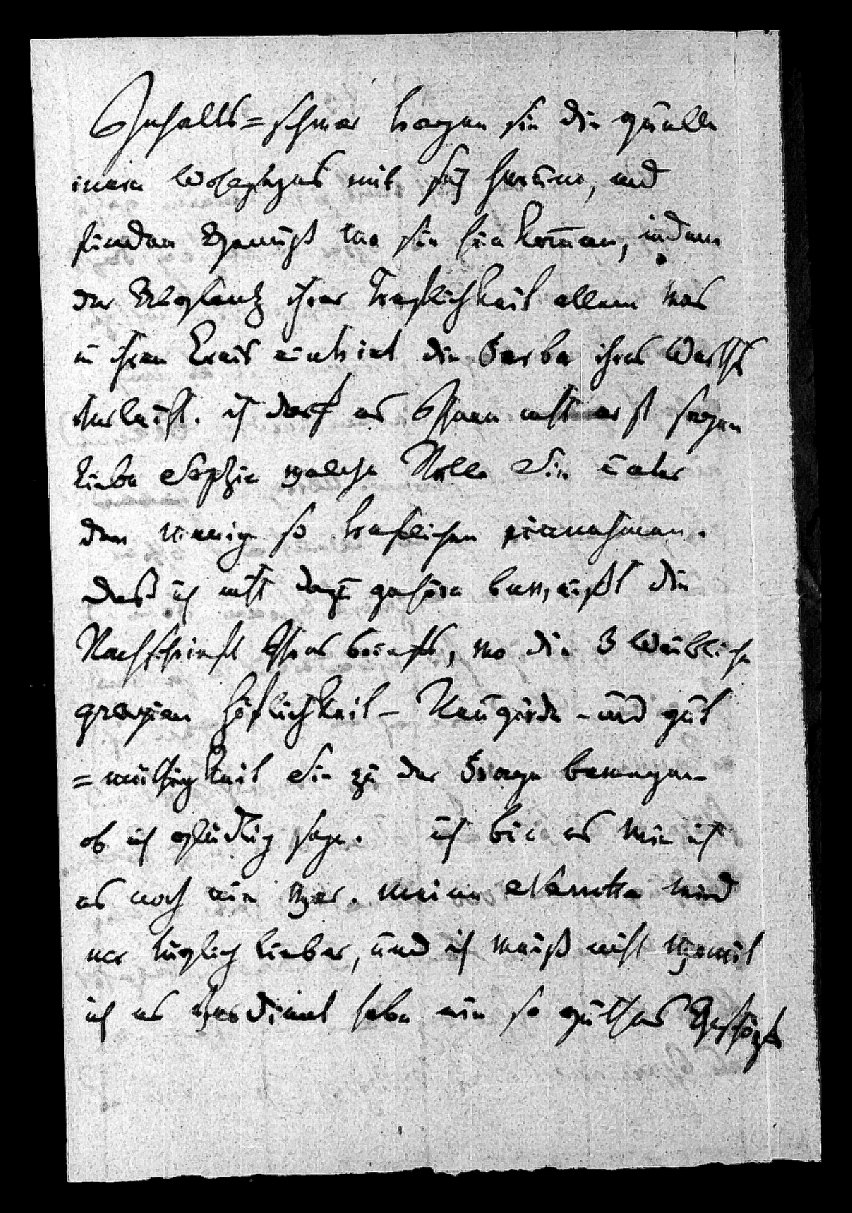 Inhalts=schwer tragen sie die quelle
ihren Wohlseyns mit sich herum, und
finden Genuß wo sie hin kommen, indem
der Abglantz ihrer Treflichkeit allem was
in ihren Creis eintriet die Farbe ihres Werths
verleiht. ich darf es Ihnen nicht erst sagen
liebe Sophie welche Rolle Sie unter
den wenig so treflichen einnehmen.
daß ich nicht dazu gehöre beweißt die
Nachschrieft Ihres briefs, wo die 3 Weibliche
grazien Höflichkeit - Neugirde - und gut
=müthigkeit Sie zu der Frage bewegen
ob ich glücklig seye. ich bin es wie ich
es noch nie war. meine Nanette wird
mir täglich lieber, und ich weiß nicht womit
ich es verdient habe ein so guthes Geschöpf